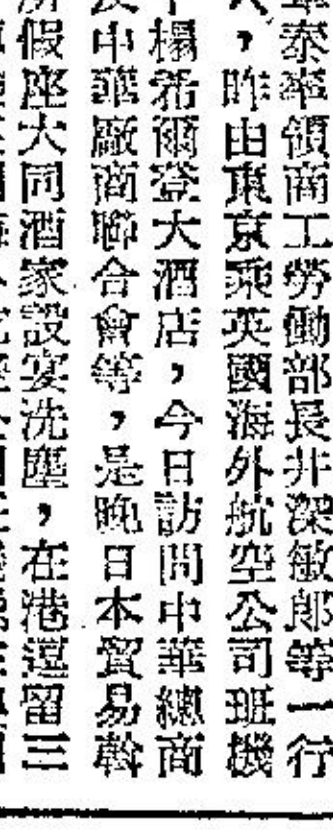 泰率領商工勞働部長井深敏郎等一行
，昨由東京乘英國海外航空公司班機
榻希爾登大酒店，今日訪問中華總商
中華廠商聯合會等，是晚日本貿易幹
假座大同酒家設宴洗塵，在港逗留三